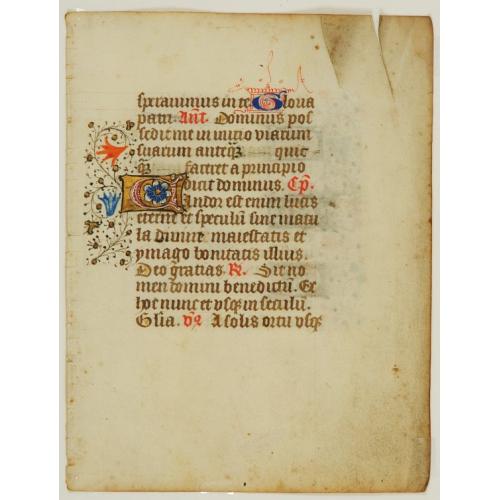 sperauimus in te Gloria
patri. Añt. Dominus pos
sedit me in inicio viarum
suarum anteq̃ꝫ quic
q̃ꝫ faceret a principio
dicit dominus. Cp̃.
Candor est enim lucis
eterne et speculũ sine macu
la diuine maiestatis et
ymago bonitatis illius.
Deo gratias. R. Sit no
men domini benedictũ. Ex
hoc nunc et vsqꝫ in seculũ.
Glia. A solis ortu vsqꝫ